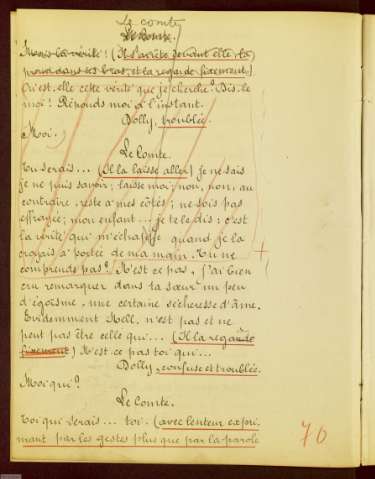 Le comte
Le Comte.
Mais la vérité! (Il s'arrête devant elle, la
prend dans ses bras, et la regarde fixement)
Qu'est-elle cette vérité que je cherche? Dis-le
moi! Réponds moi à l'instant.
Dolly, troublée.
Moi.
Le Comte.
Tu serais... (Il la laisse aller) Je ne sais
je ne puis savoir; laisse moi; non, non, au
contraire, reste à mes côtés; ne sois pas
effrayée; mon enfant... je te le dis: c'est
la vérité qui m'échappe quand je la
croyais à portée de ma main. Tu ne
comprends pas? N'est ce pas, j'ai bien
cru remarquer dans ta sœur un peu
d'égoïsme, une certaine sécheresse d'âme.
Evidemment Nell, n'est pas et ne
peut pas être celle qui... (Il la regarde
fixement) N'est ce pas toi qui...
Dolly, confuse et troublée.
Moi qui?
Le Comte.
Toi qui serais... toi. (avec lenteur expri-
mant par les gestes plus que par la parole
70